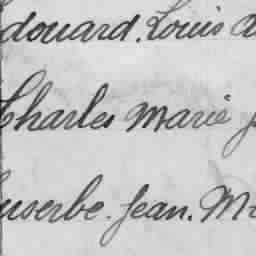 douard. Louis
Charles Marie
userbe. Jean. M